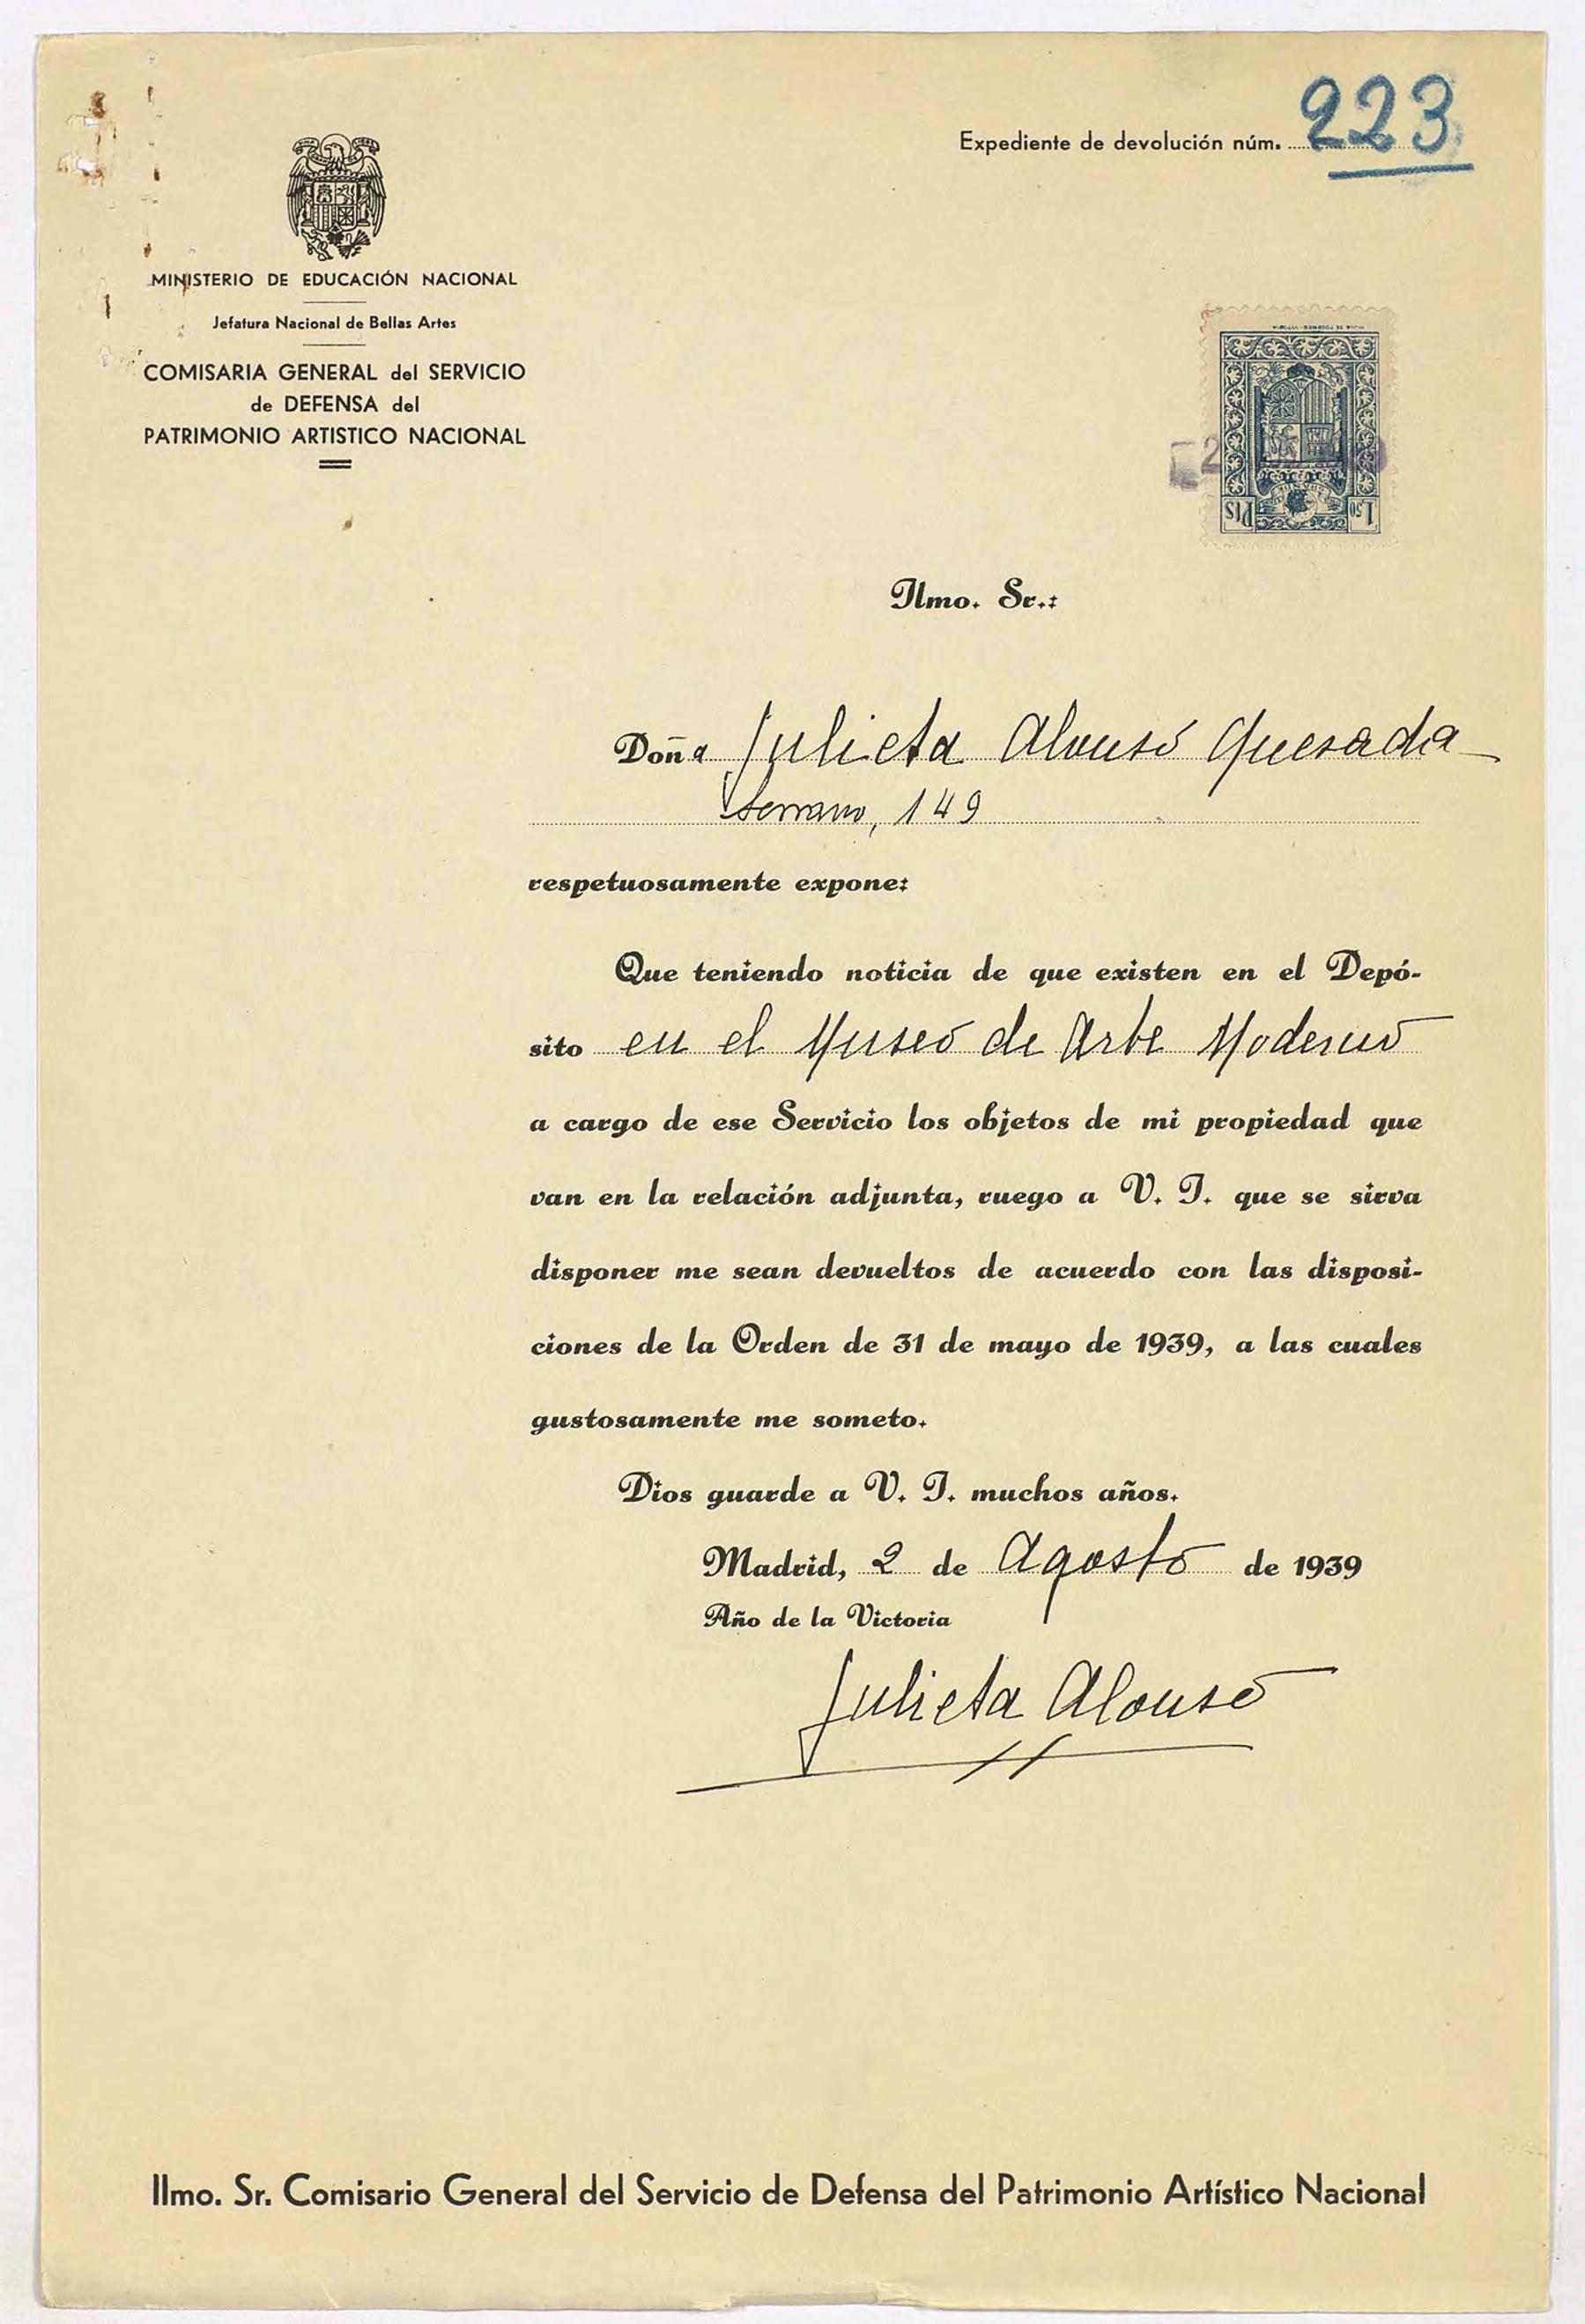 Expediente de devolución núm. 223
MINISTERIO DE EDUCACIÓN NACIONAL
Jefatura Nacional de Bellas Artes
COMISARIA GENERAL del SERVICIO
de DEFENSA del
PATRIMONIO ARTISTICO NACIONAL
1,50 Pts
Ilmo. Sr.:
Doña Julieta Alonso Quesada
Serrano, 149
respetuosamente expone:
Que teniendo noticia de que existen en el Depó-
sito en el Museo de Arte Moderno
a cargo de ese Servicio los objetos de mi propiedad que
van en la relación adjunta, ruego a V. I. que se sirva
disponer me sean devueltos de acuerdo con las disposi-
ciones de la Orden de 31 de mayo de 1939, a las cuales
gustosamente me someto.
Dios guarde a V. I. muchos años.
Madrid, 2 de Agosto de 1939
Año de la Victoria
Julieta Alonso
Ilmo. Sr. Comisario General del Servicio de Defensa del Patrimonio Artístico Nacional